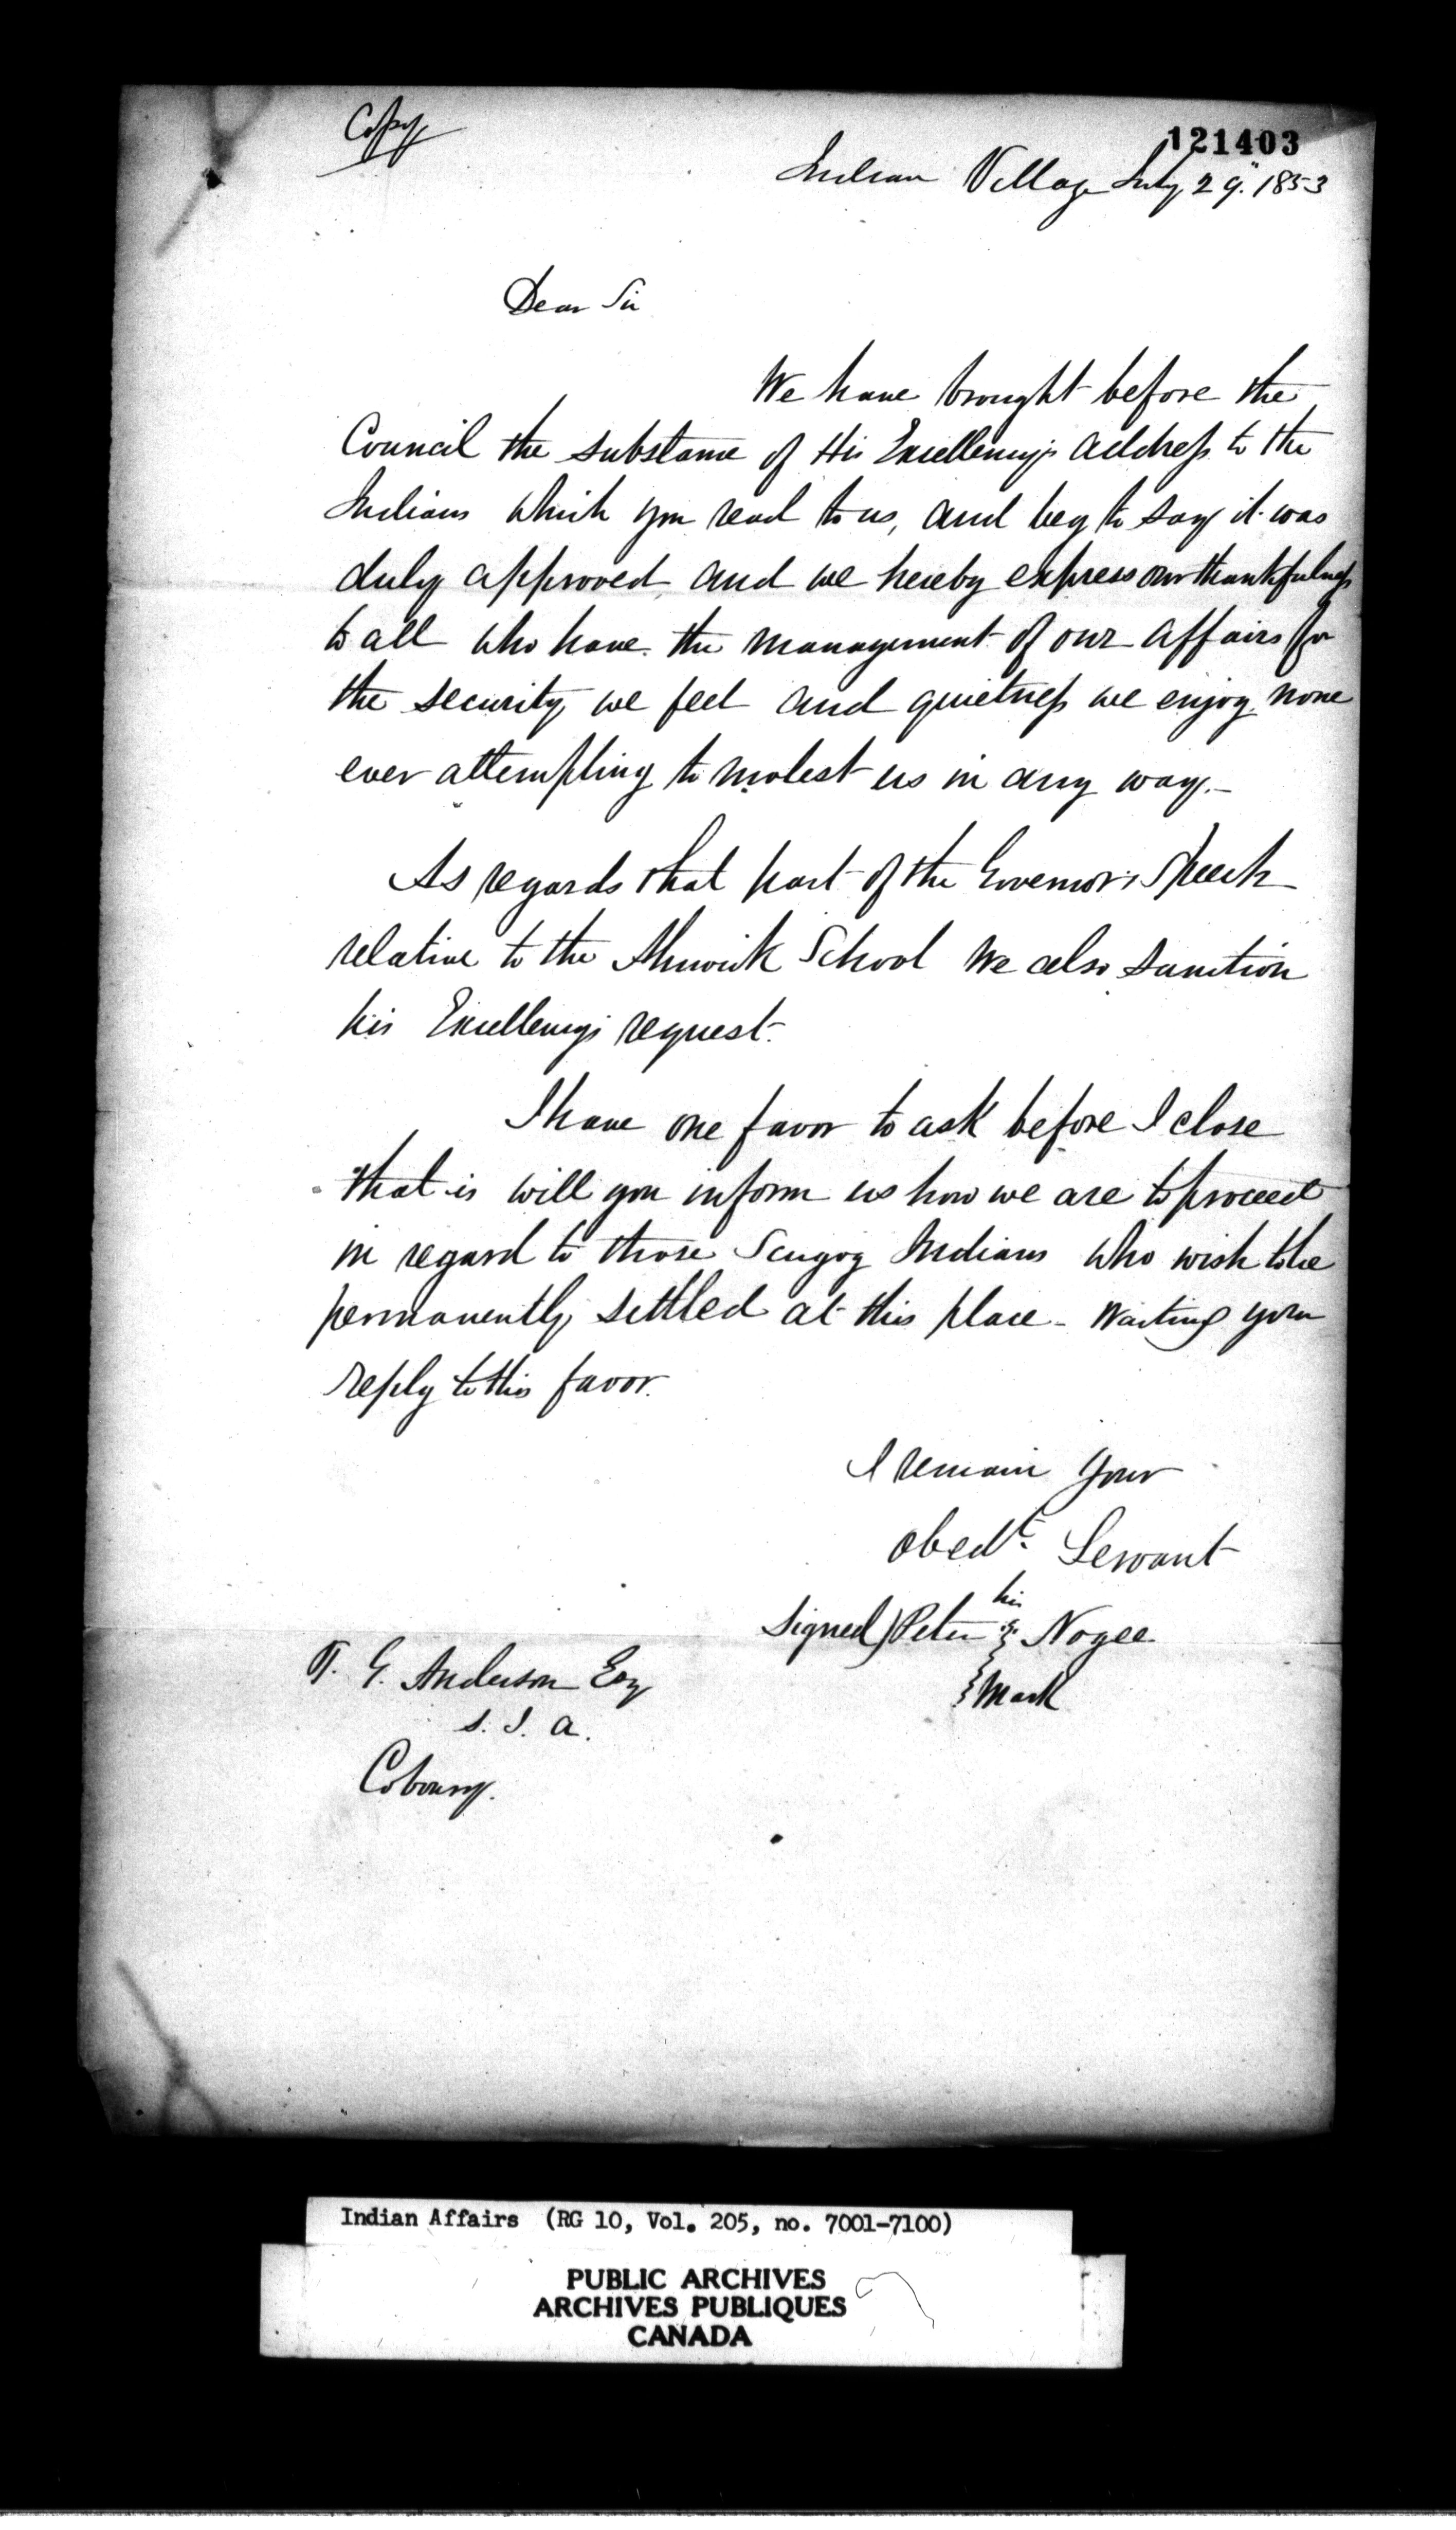 Copy
121403
Indian Village July 29th. 1853
Dear Sir
We have brought before the
Council the substance of His Excellency's address to the
Indians which you read to us, and beg to say it was
duly approved, and we hereby express our thankfulness
to all who have the management of our affairs for
the security we feel and quietness we enjoy, none
ever attempting to molest us in any way.-
As regards that part of the Governor's Speech
relative to the Alnwick School We also sanction
his Excellency's request.
I have one favor to ask before I close
that is will you inform us how we are to proceed
in regard to those Scugog Indians who wish to be
permanently settled at this place - Waiting your
reply to this favor.
I remain your
obedt. Servant
his
Signed) Peter Nogee
Mark
T. G. Anderson Esq
S. I. A.
Cobourg.
Indian Affairs (RG 10, Vol. 205, no. 7001-7100)
PUBLIC ARCHIVES
ARCHIVES PUBLIQUES
CANADA